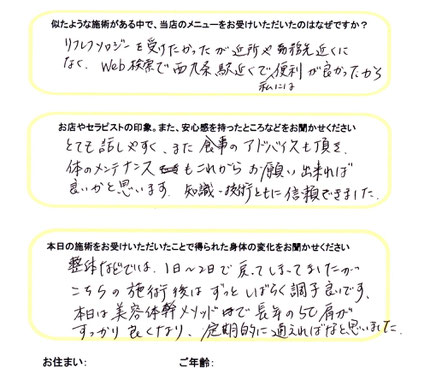 似たような施術がある中で、当店のメニューをお受けいただいたのはなぜですか?
リフレクソロジーを受けたかったが近所や勤務先近くに
なく、Web検索で西九条駅近くで私には便利が良かったから
お店やセラピストの印象。また、安心感を持ったところなどをお聞かせください
とても話しやすく、また食事のアドバイスも頂き、
体のメンテナンスもこれからお願い出来れば
良いかと思います。知識・技術ともに信頼できました。
本日の施術をお受けいただいたことで得られた身体の変化をお聞かせください
整体などでは、1日〜2日で戻ってしまってましたが
こちらの施術後はずっとしばらく調子良いです。
本日は美容体幹メソッドで長年の50肩が
すっかり良くなり、定期的に通えればなと思いました。
お住まい: ご年齢: